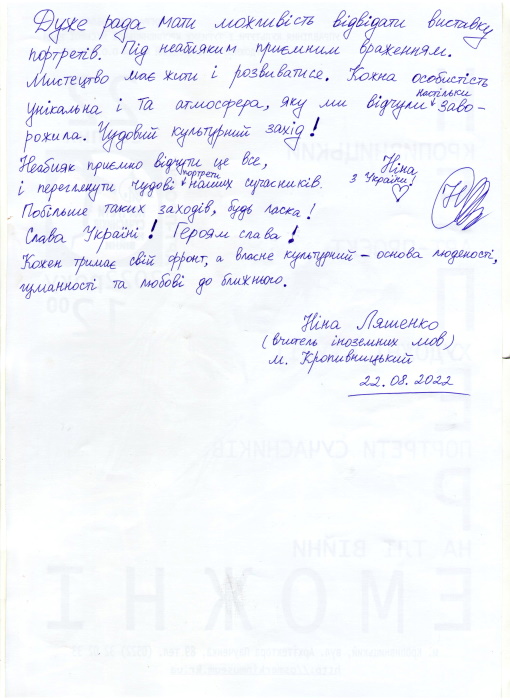 Дуже рада мати можливість відвідати виставку
портретів. Під неабияким приємним враженням.
Мистецтво має жити і розвиватися. Кожна особистість
унікальна і та атмосфера, яку ми відчули настільки заво-
рожила. Чудовий культурний захід!
Неабияк приємно відчути це все,
і переглянути чудові портрети наших сучасників.
Ніна
з України!
Побільше таких заходів, будь ласка!
Слава Україні! Героям слава!
Кожен тримає свій фронт, а власне культурний – основа людяності,
гуманності та любові до ближнього.
Ніна Ляшенко
(вчитель іноземних мов)
м. Кропивницький
22.08.2022
КРОПИВНИЦЬКИЙ
ПОРТРЕТИ СУЧАСНИКІВ
НА ТЛІ ВІЙНИ